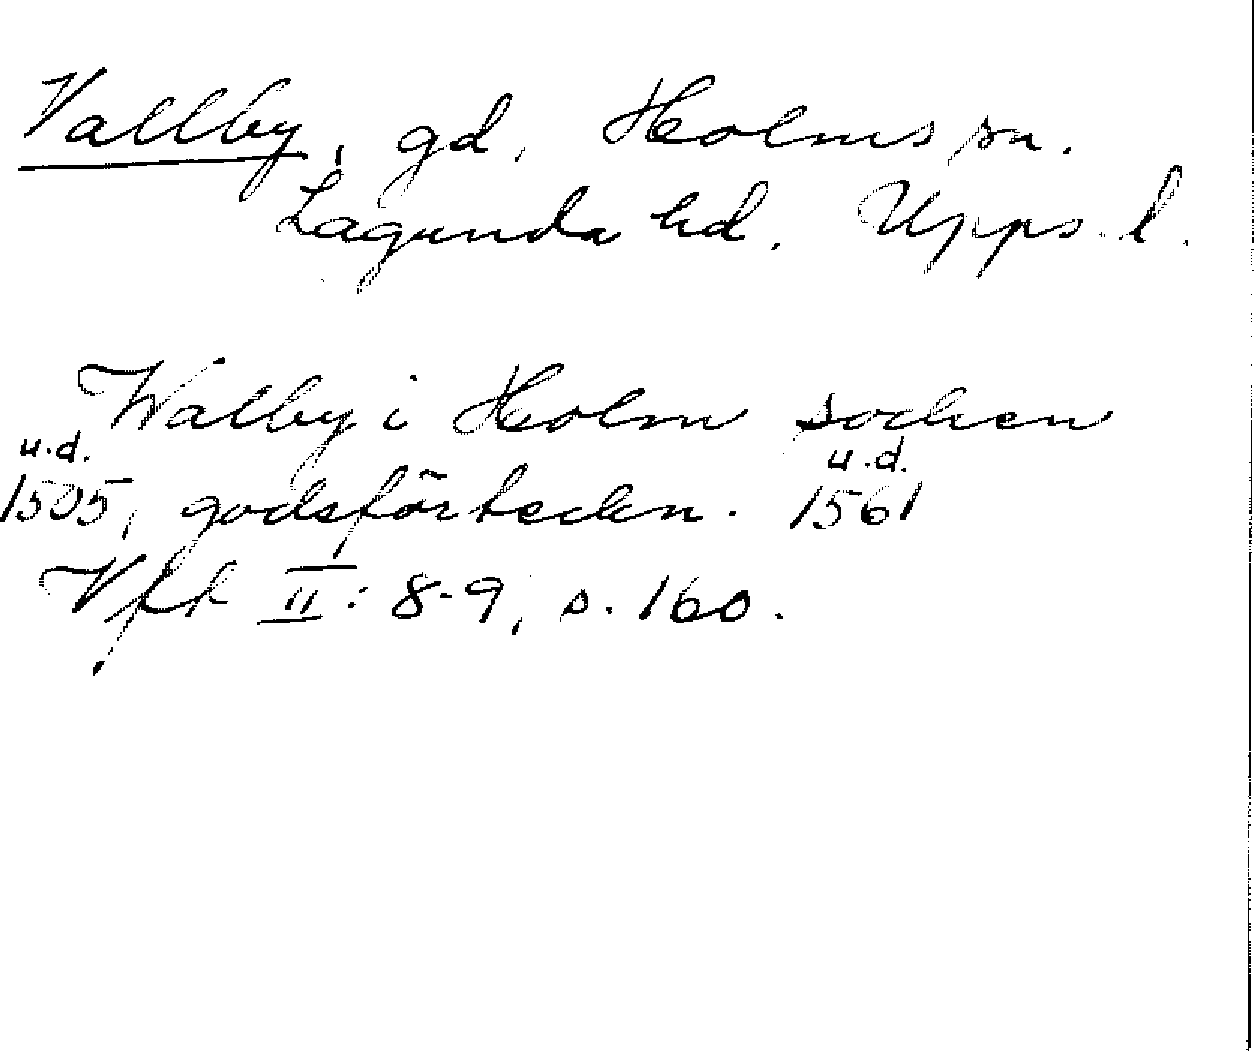 Vallby, gd, Holms sn.
Lagunda hd. Upps. l.
Walby i Holm sochen
u.d. u.d.
1505, godsförtecken. 1561
Vfk II: 8-9, s. 160.